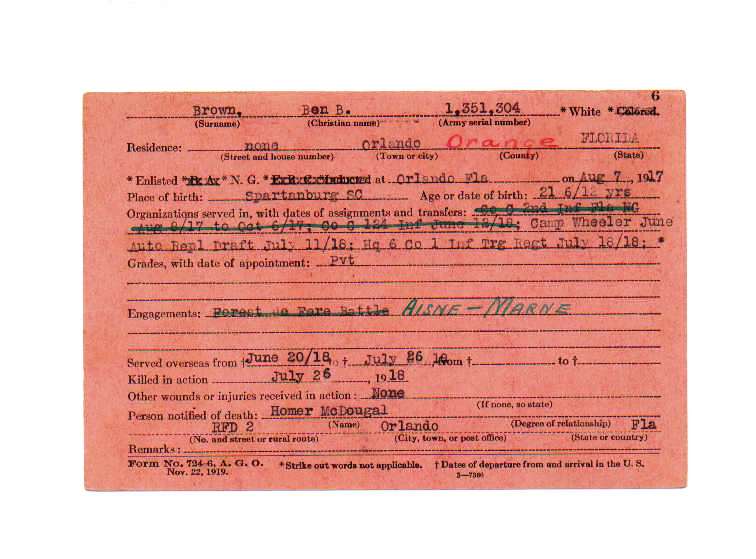 6
Brown, Ben B. 1,351,304 *White *Colored.
(Surname) (Christian name) (Army serial number)
Residence: none Orlando Orange FLORIDA
(Street and house number) (Town or city) (County) (State)
*Enlisted *R. A. *N. G. *E. R. C. *Inducted at Orlando Fla on Aug 7, 1917
Place of birth: Spartanburg SC Age or date of birth: 21 6/12 yrs
Organizations served in, with dates of assignments and transfers: Co C 2nd Inf Fla NG
Aug 8/17 to Oct 6/17; Co C 124 Inf June 12/18; Camp Wheeler June
Auto Repl Draft July 11/18; Hq 6 Co 1 Inf Trg Regt July 18/18; *
Grades, with date of appointment: Pvt
Engagements: Forest de Fere Battle AISNE-MARNE
Served overseas from † June 20/18, to † July 26 18 from † to †
Killed in action July 26, 1918
Other wounds or injuries received in action: None
(If none, so state)
Person notified of death: Homer McDougal
(Name) (Degree of relationship)
RFD 2 Orlando Fla
(No. and street or rural route) (City, town, or post office) (State or country)
Remarks:
Form No. 724-6, A. G. O. *Strike out words not applicable. † Dates of departure from and arrival in the U. S.
Nov. 22, 1919.